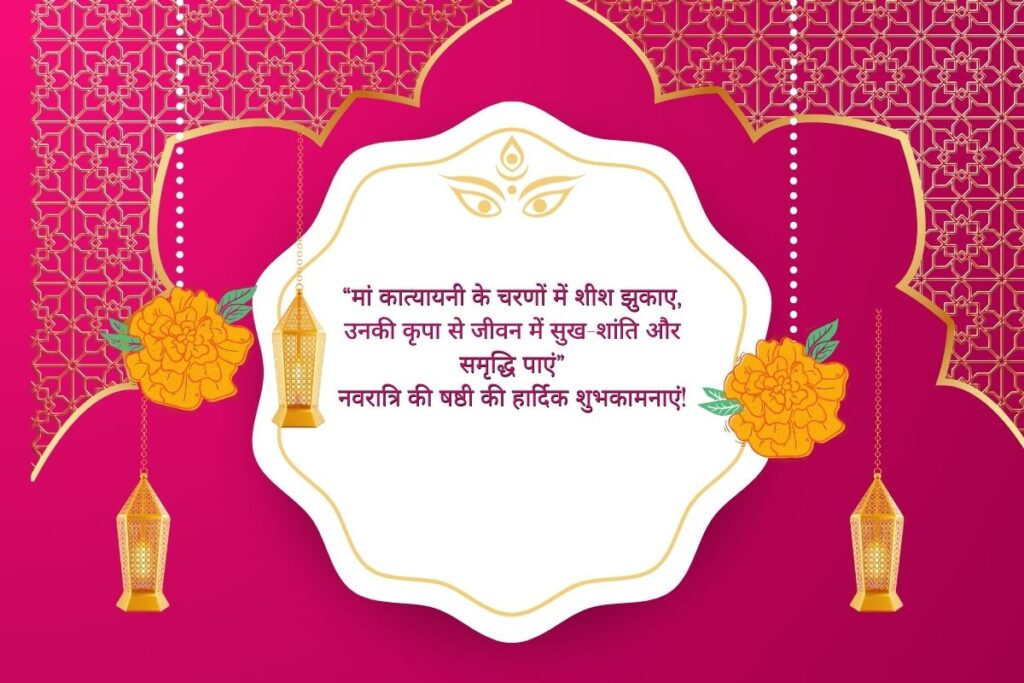 “मां कात्यायनी के चरणों में शीश झुकाए,
उनकी कृपा से जीवन में सुख-शांति और
समृद्धि पाएं”
नवरात्रि की षष्ठी की हार्दिक शुभकामनाएं!